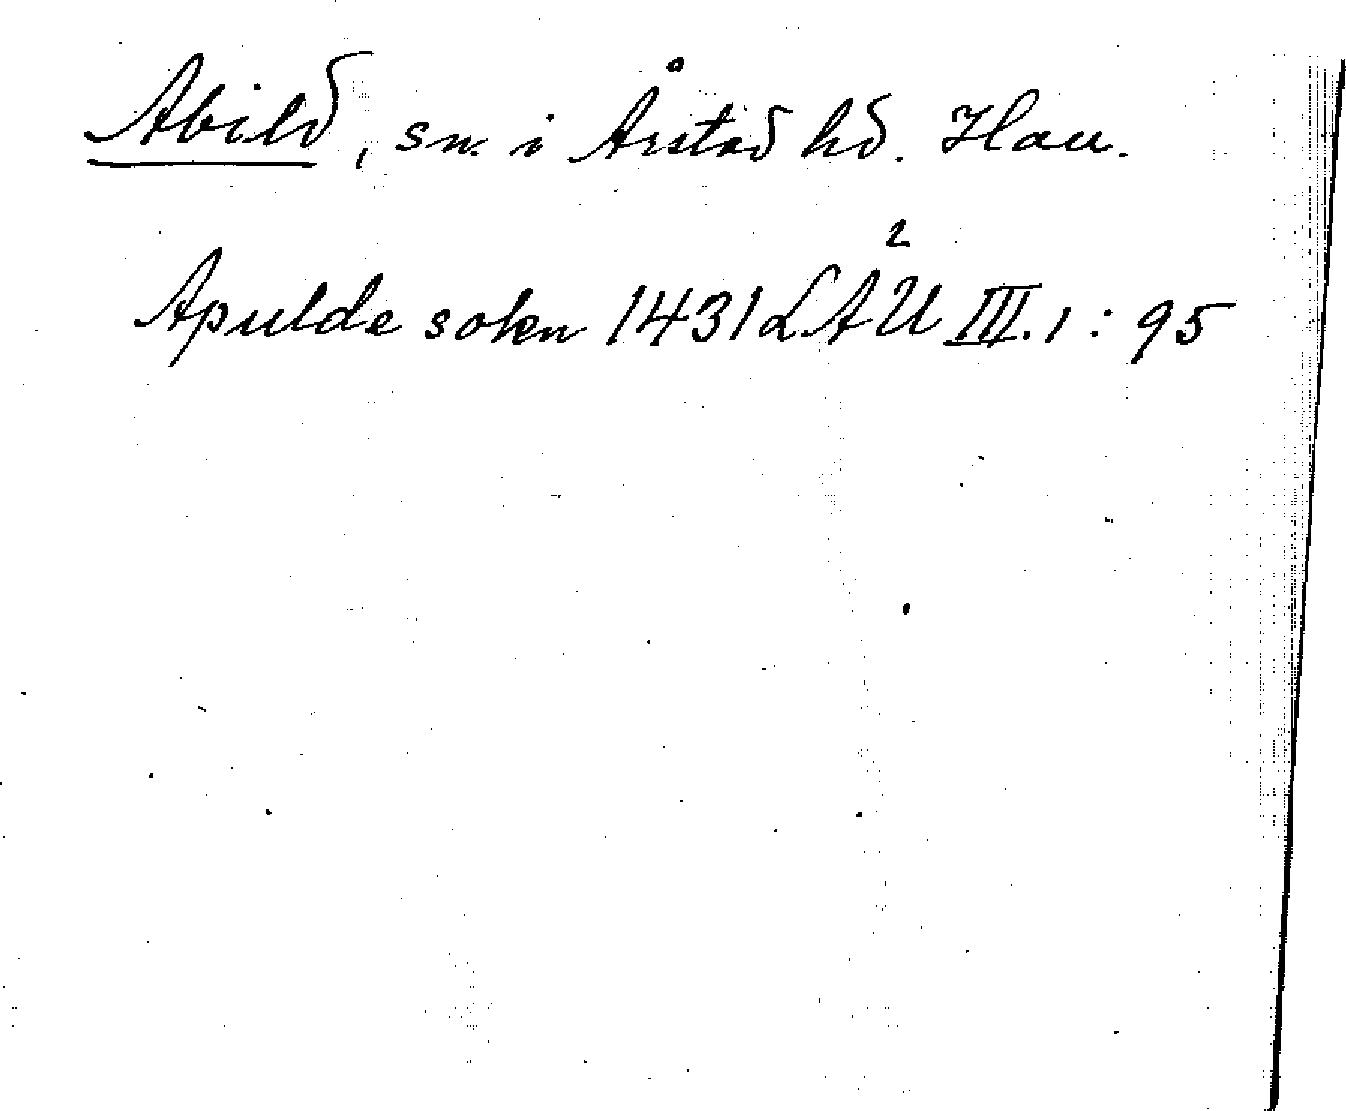 Abild, sn. i Årstad hd. Hall.
Apulde sokn 1431 LÄU III.1:95